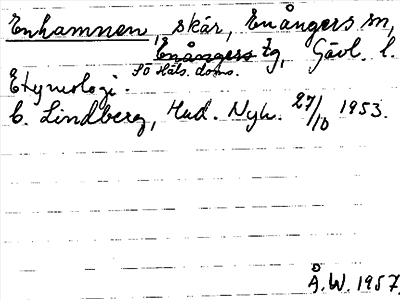 Enhamnen, skär, Enångers sn,
Enångers tg, Gävl. l.
SÖ Häls. doms.
Etymologi.
C. Lindberg, Hud. Nyh. 27/10 1953.
Å.W. 1957.